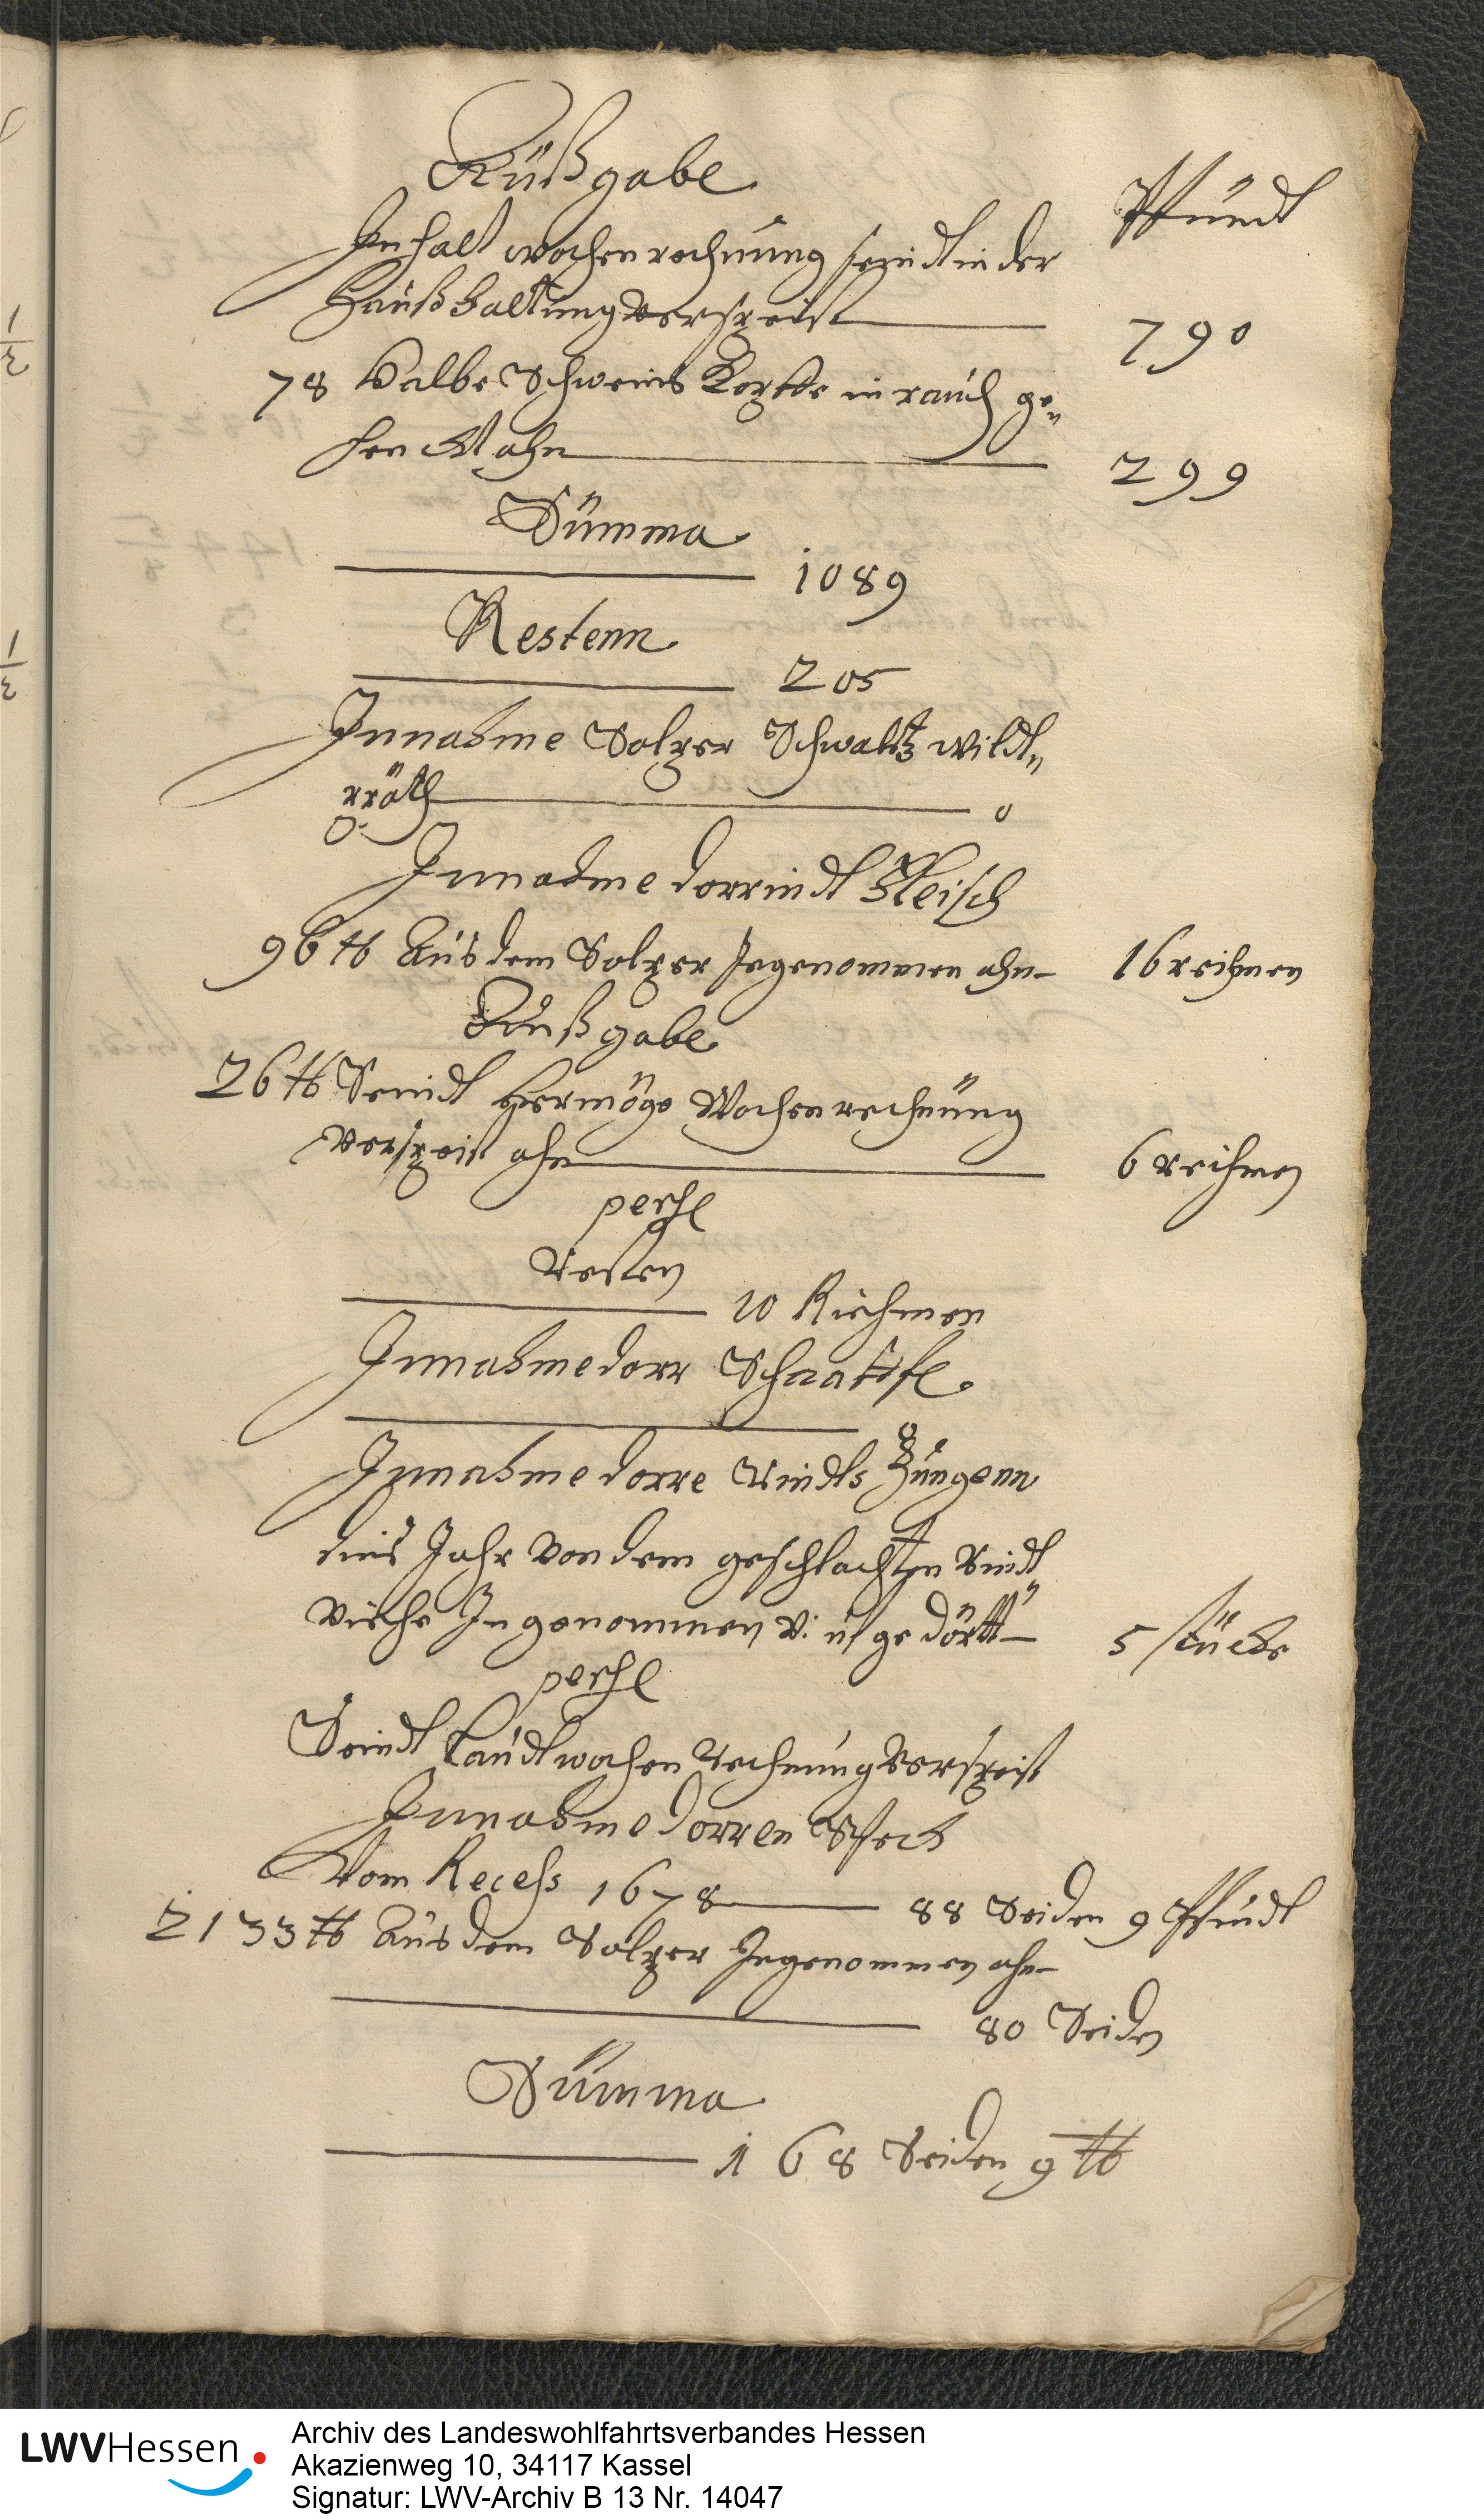 Außgabe
Pfundt
Inhalt wochenrechnung seindt in der
Haußhaltung verspeist 790
78 halbe Schweins Köpffe in rauch ge„
henckt ahn 299
Summa
1089
Restenn
205
Innahme Solper Schwartz wildt„
präth 0
0.
Innahme dorrindt Fleisch
96 ℔ Aus dem Solper Ingenommen ahn 16 reihmen
Außgabe
26 ℔ Seindt Vermöge Wochenrechnung
verspeist ahn 6 reihmen
per se
Resten
10 Riehmen
Innahme dorr Schaaffl.
Innahme dorre Rindts Zungenn
dies Jahr von dem geschlachten Rindt
viehe Ingenommen v: uf gedörtt 5 stücke
per se
Seindt Laudt wochen Rechnung verspeist
Innahme dorren Speck
Vom Recess 1678 88 Seiden 9 Pfundt
2133 ℔ Aus dem Solper Ingenommen ahn
80 Seiden
Summa
168 Seiden 9 ℔
LWVHessen
Archiv des Landeswohlfahrtsverbandes Hessen
Akazienweg 10, 34117 Kassel
Signatur: LWV-Archiv B 13 Nr. 14047